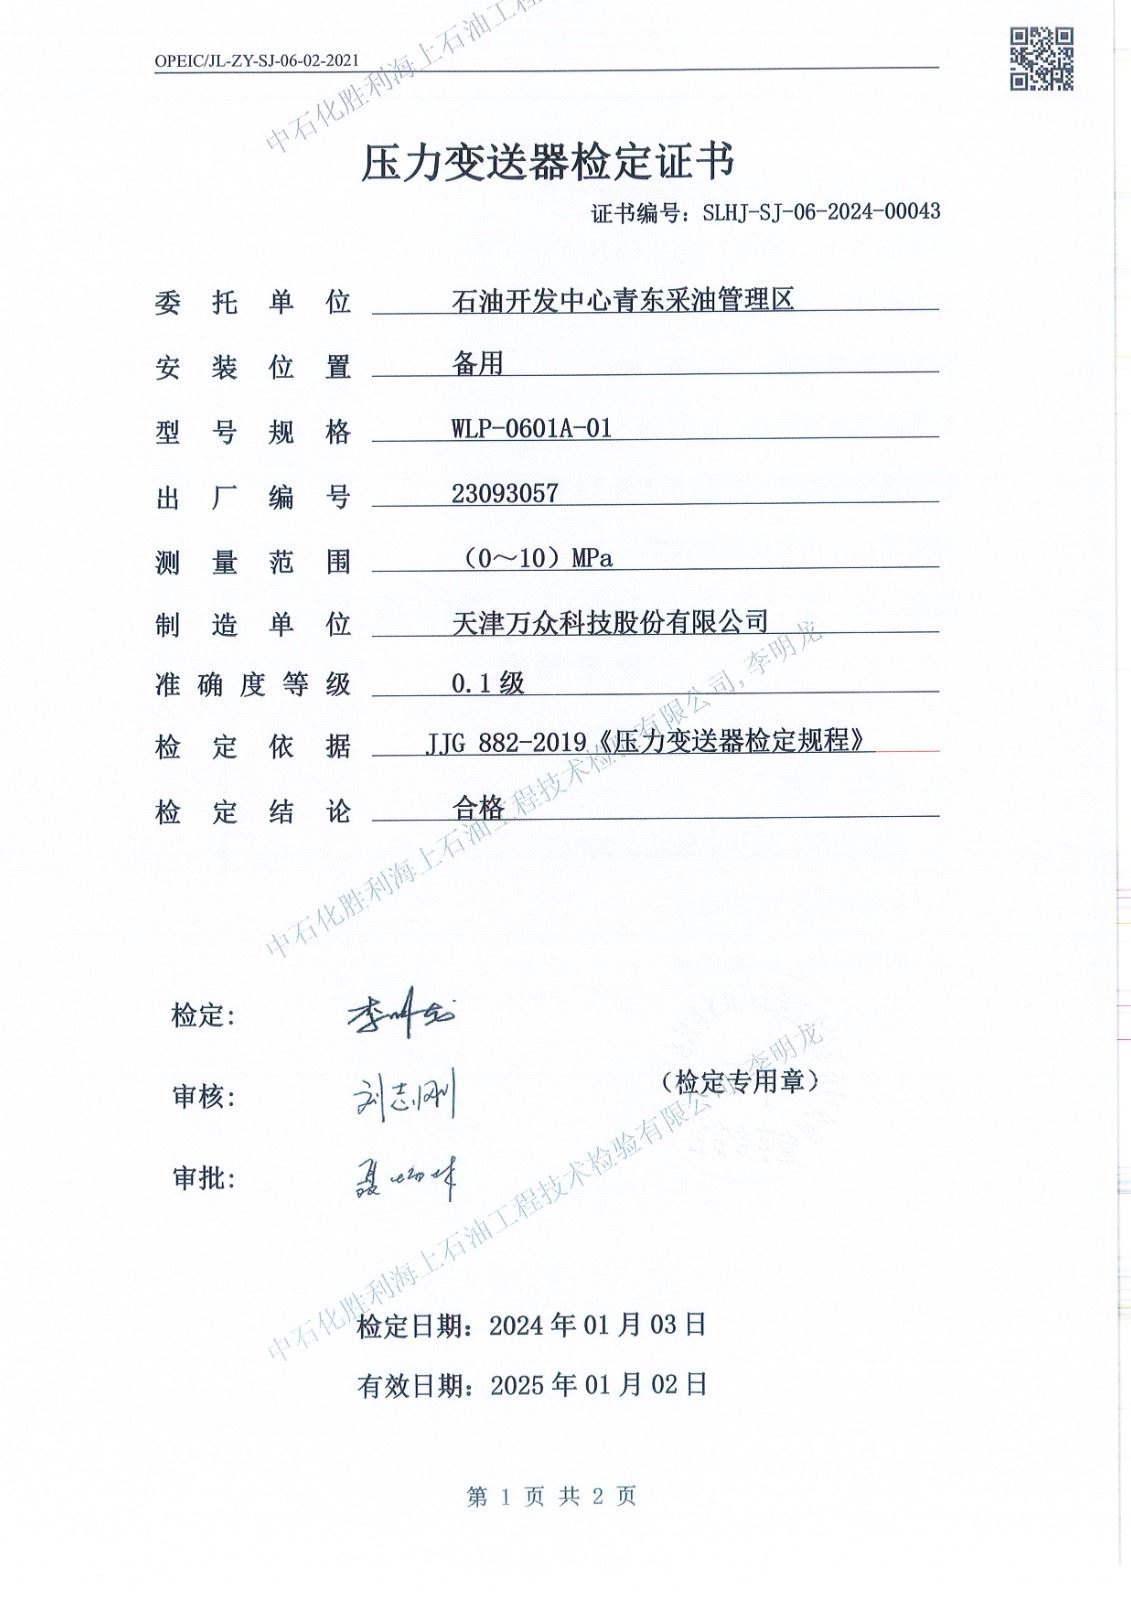 OPEIC/JL-ZY-SJ-06-02-2021
中石化胜利海上石油工程
压力变送器检定证书
证书编号：SLHJ-SJ-06-2024-00043
委托单位 石油开发中心青东采油管理区
安装位置 备用
型号规格 WLP-0601A-01
出厂编号 23093057
测量范围 （0～10）MPa
制造单位 天津万众科技股份有限公司
准确度等级 0.1级
检定依据 JJG 882-2019《压力变送器检定规程》
检定结论 合格
中石化胜利海上石油工程技术检验有限公司，李明龙
检定： 李明龙
审核： 刘志刚
（检定专用章）
审批：
中石化胜利海上石油工程技术检验有限公司，李明龙
检定日期：2024年01月03日
有效日期：2025年01月02日
第 1 页 共 2 页